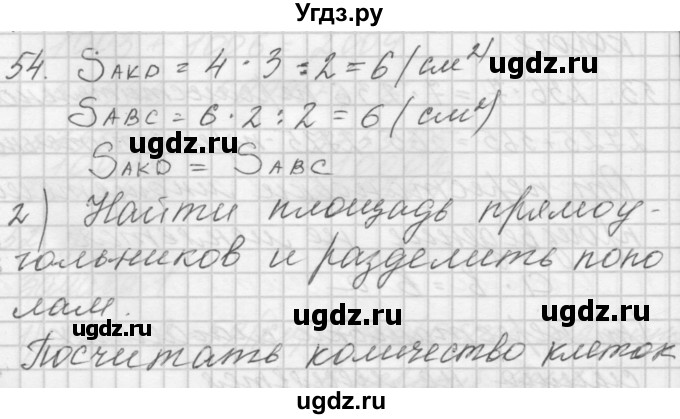 Угдз.ру
54. SAKD = 4 · 3 : 2 = 6 (см²)
SABC = 6 · 2 : 2 = 6 (см²)
SAKD = SABC
2) Найти площадь прямоу-
гольников и разделить попо
лам.
Посчитать количество клеток
ugdz.ru ugdz.ru ugdz.ru
ugdz.ru ugdz.ru ugdz.ru
ugdz.ru ugdz.ru ugdz.ru
ugdz.ru ugdz.ru ugdz.ru